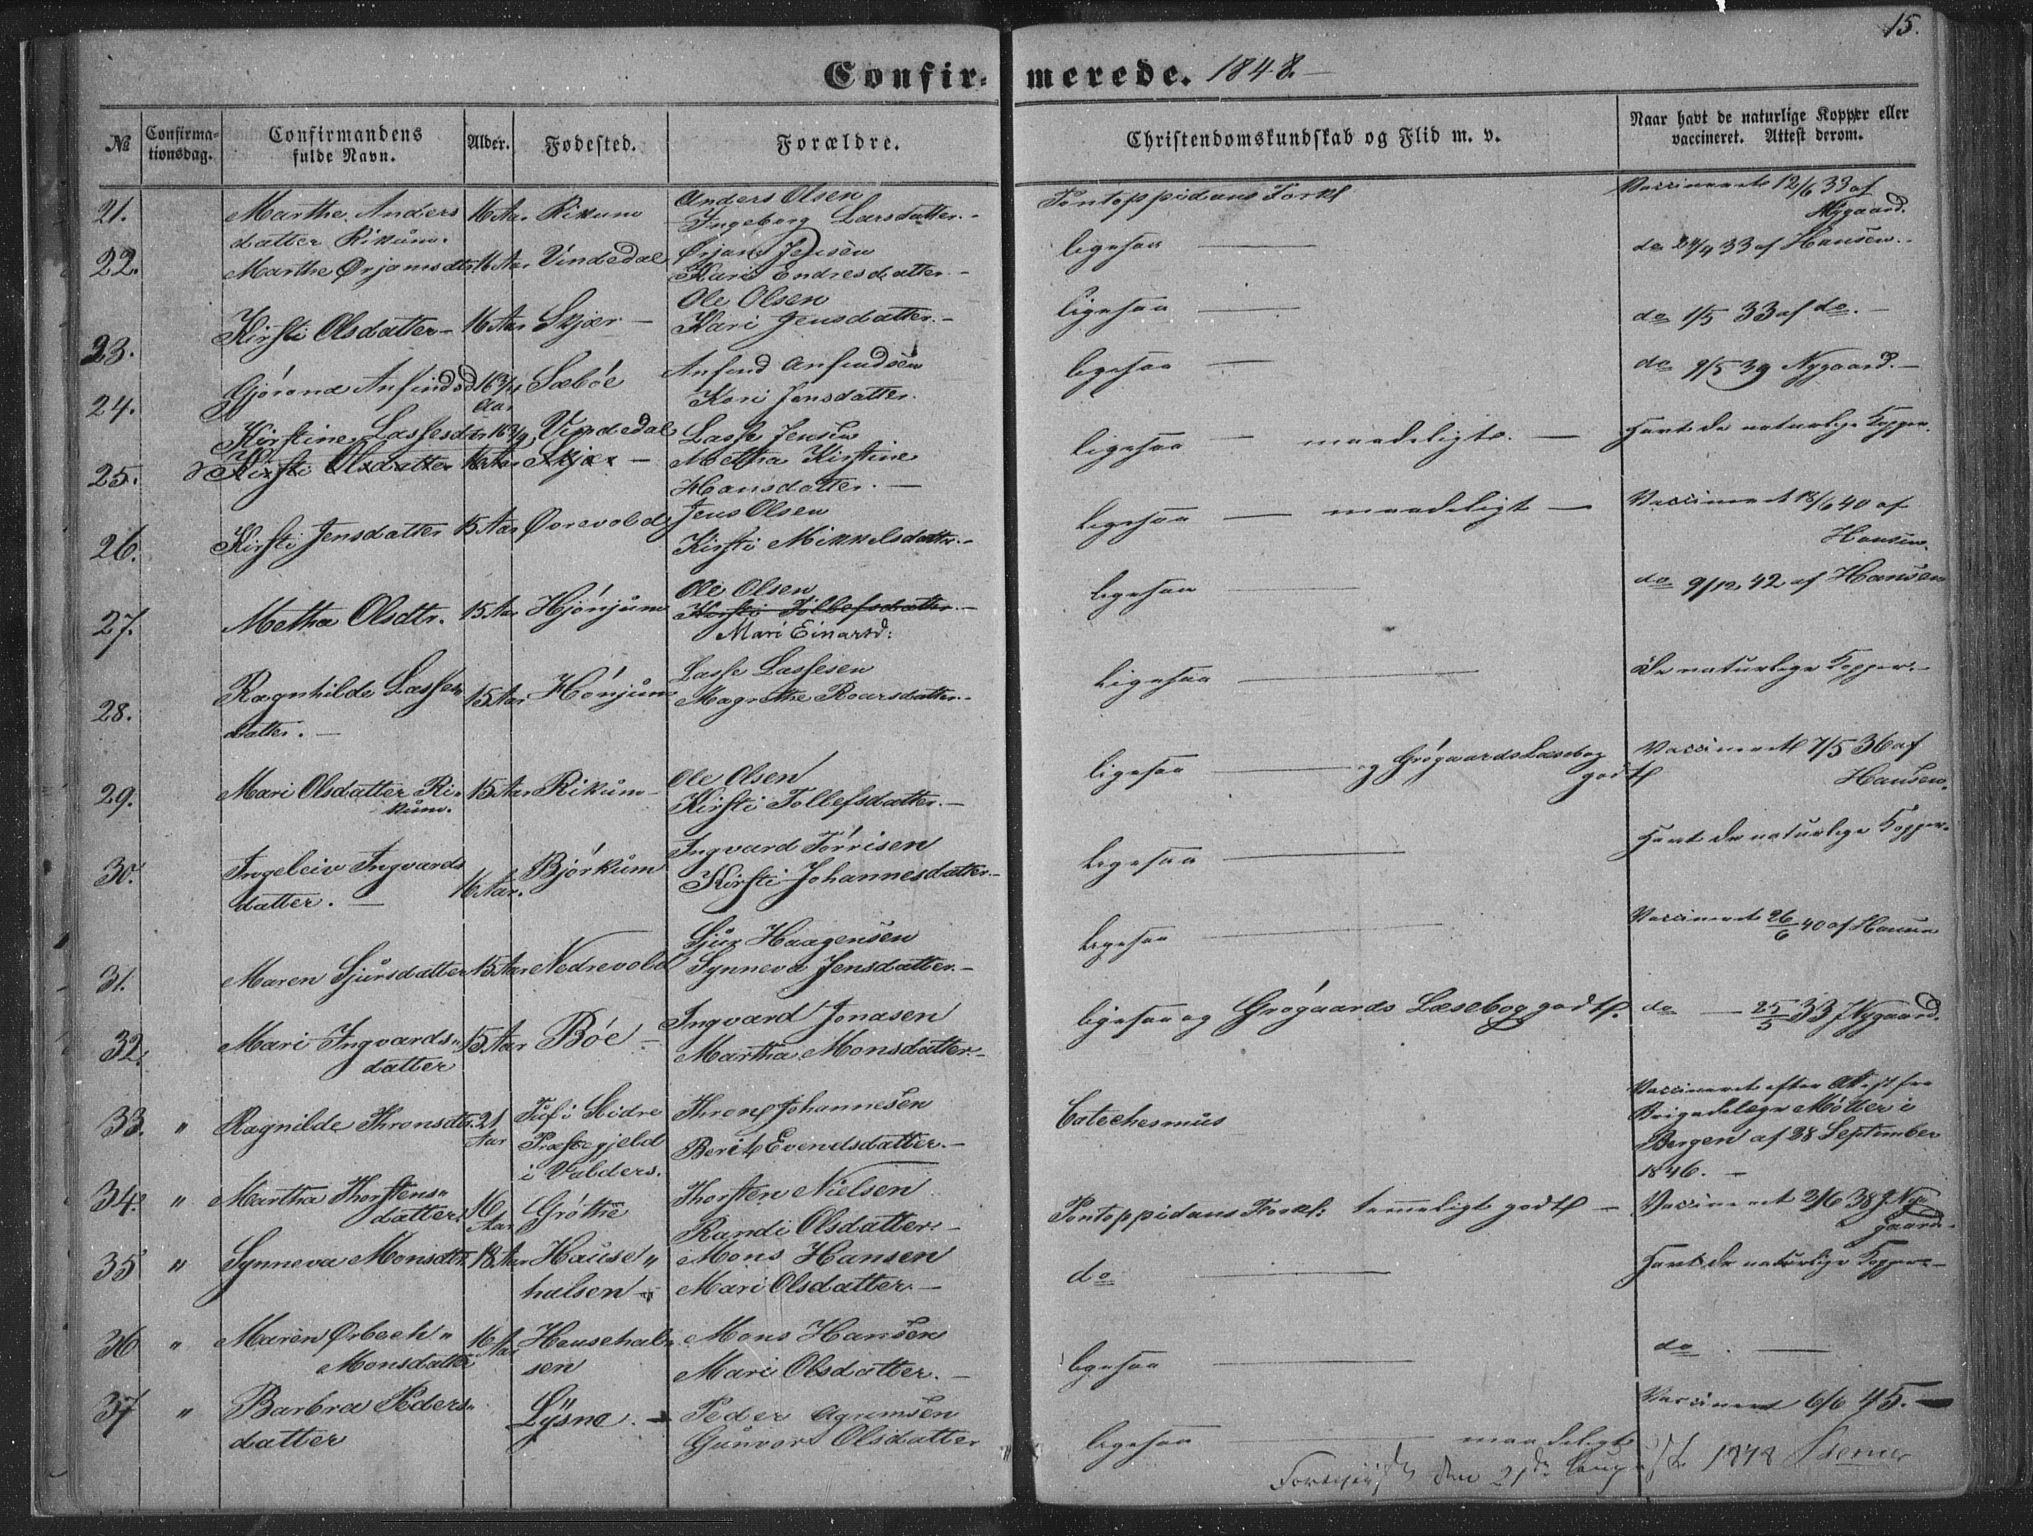 15.
Confirmerede. 1848.
№ Confirmationsdag. Confirmandens fulde Navn. Alder. Fødested. Forældre. Christendomskundskab og Flid m. v. Naar havt de naturlige Kopper eller vaccineret. Attest derom.
21. Marthe Anders 16 Aar Rikum Anders Olsen Pontoppidans Forkl Vaccineret 12/6 33 af
datter Rikum. Ingeborg Larsdatter. Nygaard.
22. Marthe Ørjansdtr 16 Aar Vindedal Ørjans Jensen ligesaa do 24/4 33 af Hansen.
Kari Endresdatter.
23. Kirsti Olsdatter 16 Aar Skjær Ole Olsen ligesaa do 1/5 33 af do.
Kari Jensdatter.
24. Gjørond Anfindsd 16 3/4 Aar Sæbøe Anfind Anfindsen ligesaa do 9/5 39 Nygaard.
Kari Jensdatter.
25. Kirstine Lassesdtr 16 Vindedal Lasse Jensen ligesaa maadeligt. Havt de naturlige Kopper.
Kirsti Olsdatter 16 Aar Skjær Metha Kirstine
Hansdatter.
26. Kirsti Jensdatter 15 Aar Øvrevold Jens Olsen ligesaa maadeligt Vaccineret 18/6 40 af
Kirsti Mikkelsdatter. Hansen.
27. Metha Olsdtr. 15 Aar Hjønjum Ole Olsen ligesaa do 9/12 42 af Hansen
Kirsti Tollefsdatter.
Mari Einarsd:
28. Ragnhilde Lasses 15 Aar Hønjum Lasse Lassesen ligesaa de naturlige Kopper.
datter. Magrethe Roarsdatter.
29. Mari Olsdatter Ri- 15 Aar Rikum Ole Olsen ligesaa og Grøgaards Læsebog Vaccineret 7/5 36 af
kum. Kirsti Tollefsdatter. godt Hansen.
30. Ingeleiv Ingvards 16 Aar. Bjørkum Ingvard Tørrisen ligesaa Havt de naturlige Kopper.
datter. Kirsti Johannesdatter.
31. Maren Sjursdatter 15 Aar Nedrevold Sjur Haagensen ligesaa Vaccineret 26/6 40 af Hansen
Synneva Jensdatter.
32. Mari Ingvards- 15 Aar Bøe Ingvard Jonasen ligesaa og Grøgaards Læsebog godt. do 25/5 33 Nygaard.
datter Martha Monsdatter.
33. " Ragnilde Thronsdtr 21 Aar Tuf i Slidre Thron Johannesen Catechesmus Vaccineret efter Attest fra
Præstegjeld Berit Evendsdatter. Brigadelæge Møller i
i Valders. Bergen af 28 September
1846.
34. " Martha Thorstens- 16 Aar Grøthe Thorsten Nielsen Pontoppidans Forkl: temeligt godt Vaccineret 2/6 38 Ny-
datter Randi Olsdatter. gaard.
35 " Synneva Monsdtr 18 Aar Hause- Mons Hansen do Havt de naturlige Kopper.
halsen Mari Olsdatter.
36 " Maren Ørbech- 16 Aar Hausehal- Mons Hansen ligesaa do.
Monsdatter sen Mari Olsdatter.
37 " Barbra Peders- Lysne. Peder Agrimsen ligesaa maadeligt Vaccineret 6/6 45.
datter Gunvor Olsdatter
den 21de 1848